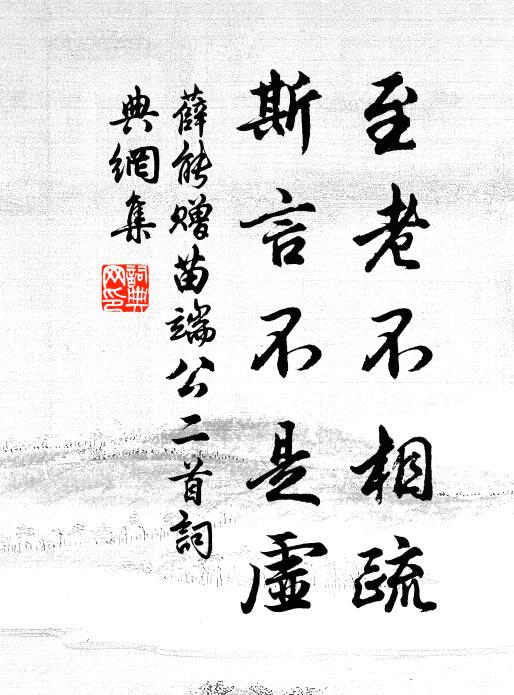 至老不相疏
斯言不是虛
薛能贈苗端公二首詞
典網集
詞典網印